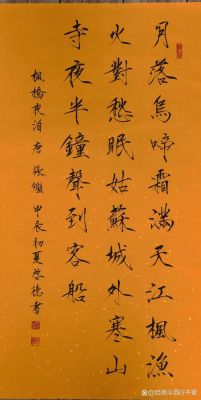 月落烏啼霜滿天江楓漁
火對愁眠姑蘇城外寒山
寺夜半鐘聲到客船
楓橋夜泊 唐 張繼 甲辰初夏啓德書